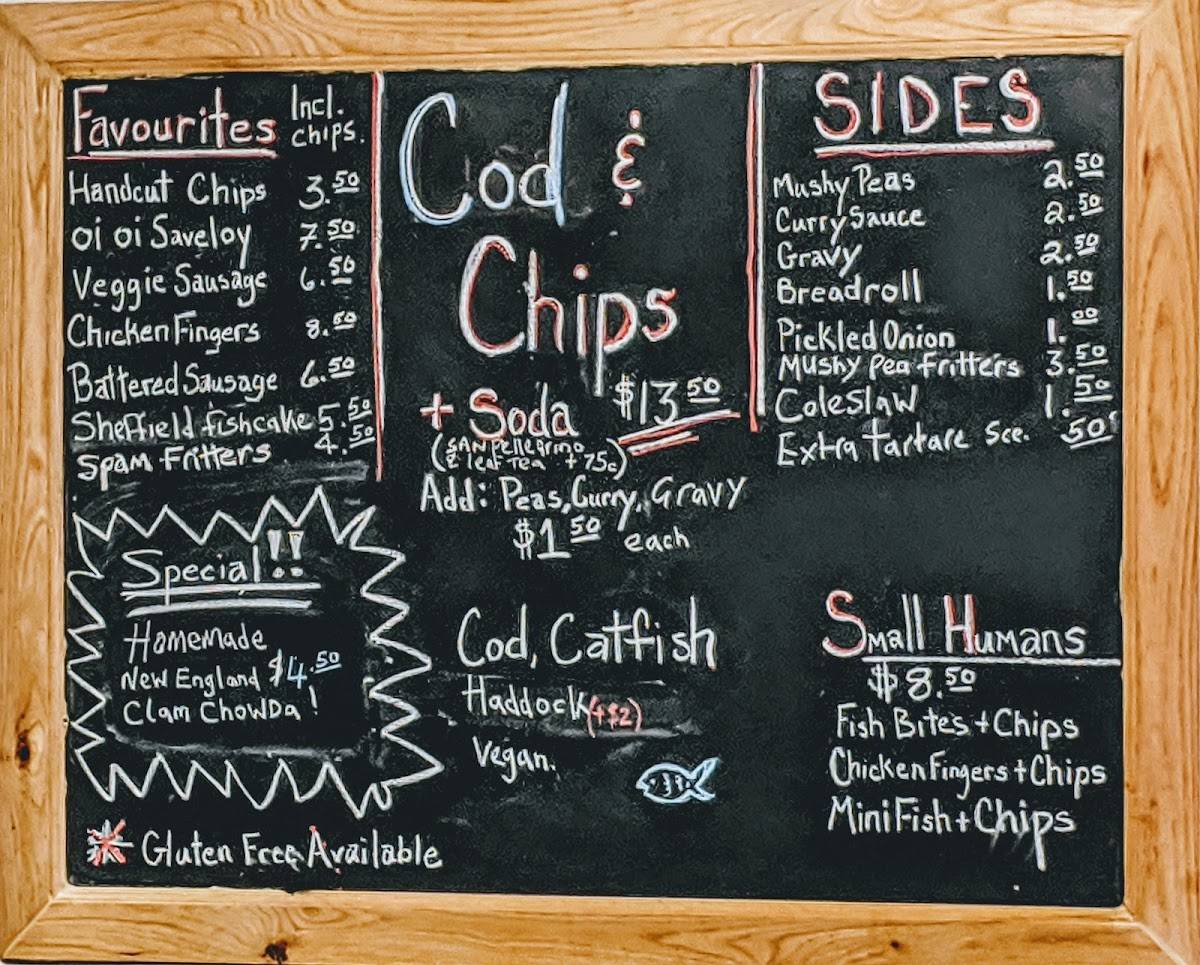 Favourites Incl. chips.
Handcut Chips 3.50
oi oi Saveloy 7.50
Veggie Sausage 6.50
Chicken Fingers 8.50
Battered Sausage 6.50
Sheffield fishcake 5.50
Spam Fritters 4.50
Special!!
Homemade
New England $4.50
Clam Chowda!
Gluten Free Available
Cod &
Chips
+ Soda $13.50
(SANpellegrino
& leaf Tea +75c)
Add: Peas, Curry, Gravy
$1.50 each
Cod, Catfish
Haddock(+$2)
Vegan.
SIDES
Mushy Peas 2.50
Curry Sauce 2.50
Gravy 2.50
Breadroll 1.50
Pickled Onion 1.00
Mushy Pea Fritters 3.50
Coleslaw 1.50
Extra Tartare Sce. .50
Small Humans
$8.50
Fish Bites + Chips
Chicken Fingers + Chips
Mini Fish + Chips